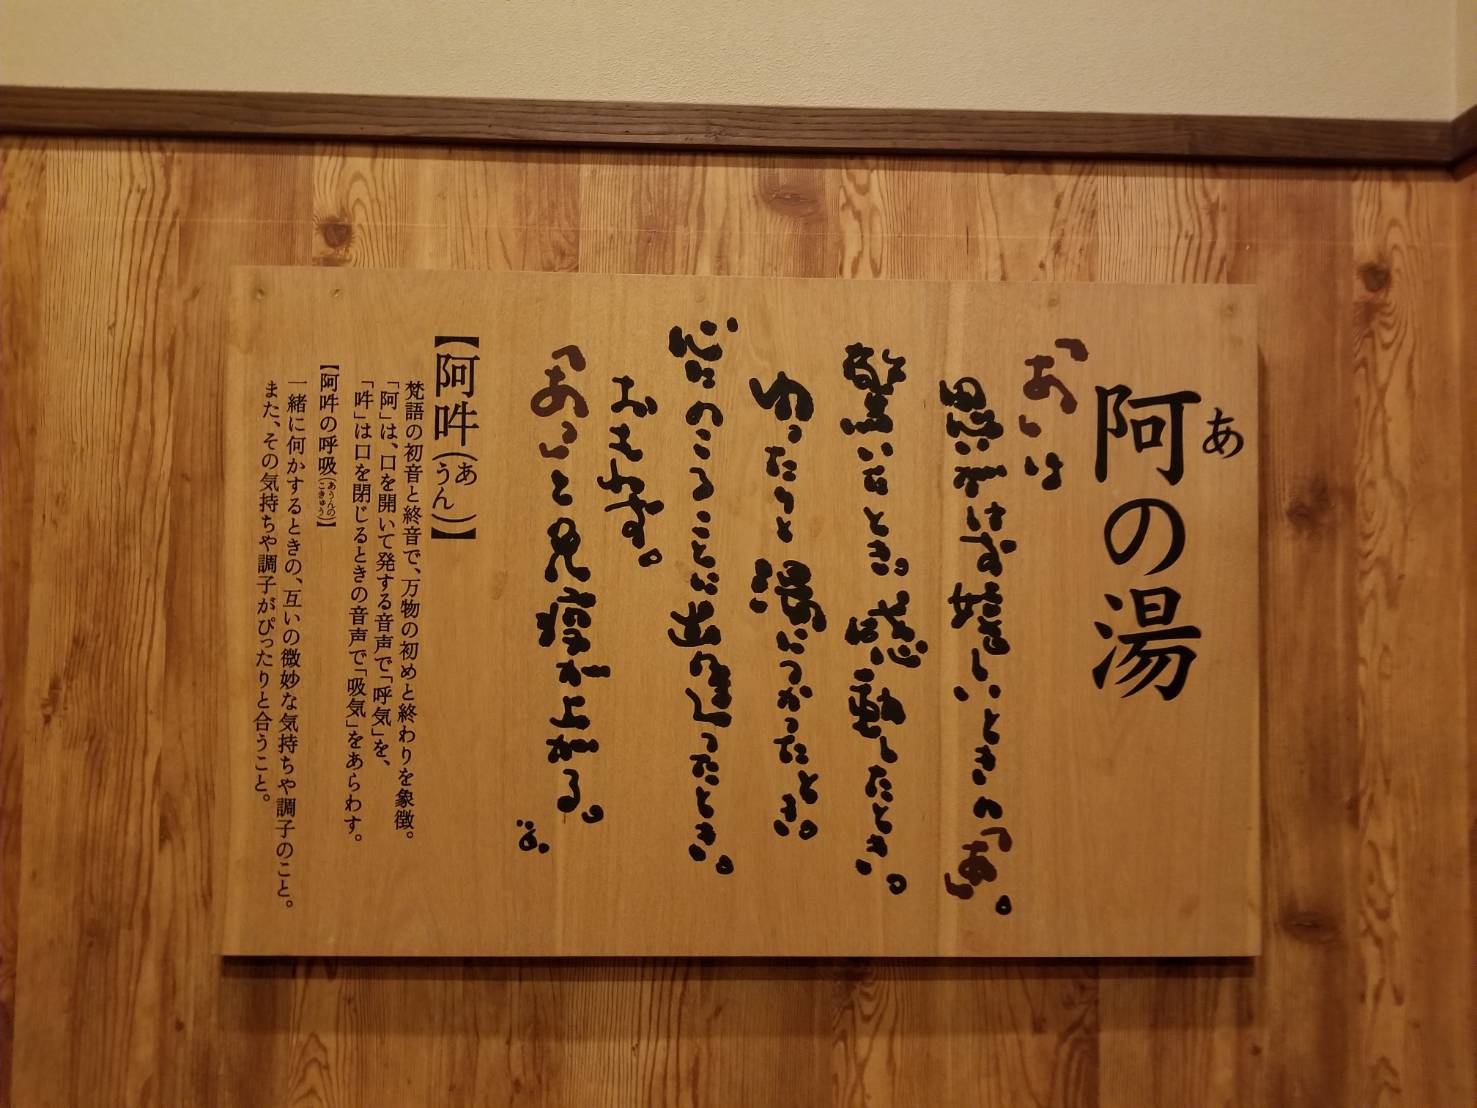 阿の湯
あ
「あ」は
思わず嬉しいときの「あ」。
驚いたとき。感動したとき。
ゆったりと湯につかったとき。
心にのこることに出逢ったとき。
おもわず。
「あっ」と見声が上がる。
【阿吽(あうん)】
梵語の初音と終音で、万物の初めと終わりを象徴。
「阿」は、口を開いて発する音声で「呼気」を、
「吽」は口を閉じるときの音声で「吸気」をあらわす。
【阿吽の呼吸(あうんのこきゅう)】
一緒に何かするときの、互いの微妙な気持ちや調子のこと。
また、その気持ちや調子がぴったりと合うこと。